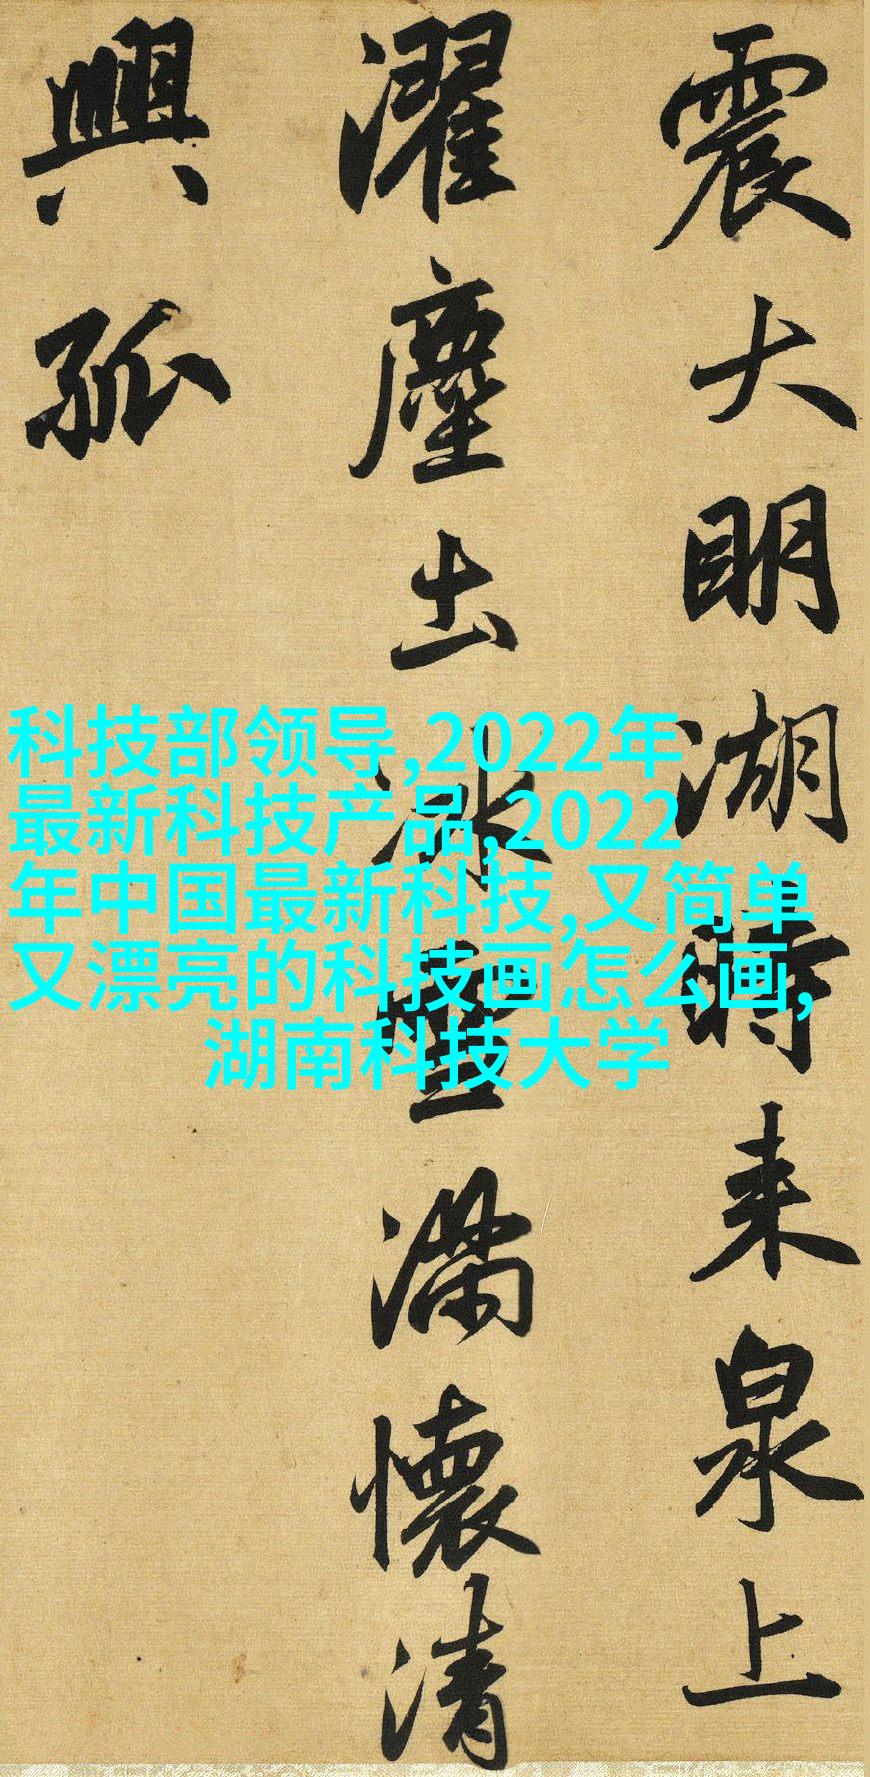 震大明湖時来泉上
濯塵土冰雪滿懷清
興孤
科技部领导,2022年
最新科技产品,2022
年中国最新科技,又简单
又漂亮的科技画怎么画,
湖南科技大学